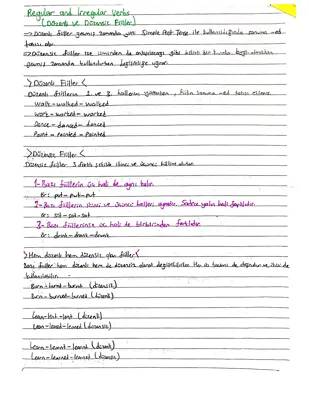 Regular and Irregular Verbs
(Düzenli ve Düzensiz Fiiller)
→Düzenli fiiller geçmiş zamanda yani Simple Past Tense ile kullanıldığında sonuna -ed
takısı alır.
→Düzensiz fiiller ise isminden de anlaşılacağı gibi
geçmiş zamanda kullanılırken
>Düzenli Fiiller<
Düzenli fiillerin 2. ve 3. hallerini yaparken, fiilin sonuna -ed takısı
Walk - walked - walked
work - worked - worked
Dance - danced - danced
Paint - painted - painted
>Düzensiz Fiiller<
Düzensiz fiiller 3 farklı şekilde ikinci ve üçüncü hallerini alırlar.
1- Bazı fiillerin üç hali de aynı kalır.
Ör: put - put - put
2- Bazı fiillerin ikinci ve üçüncü halleri aynıdır. Sadece yalın hali farklıdır.
Ör: sit - sat - sat
3- Bazı fiillerinse üç hali de birbirinden farklıdır.
Ör: drink - drank - drunk
>Hem düzenli hem düzensiz olan fiiller<
Bazı fiiller hem düzenli hem de düzensiz olarak değişebilirler. Her iki durumu da doğrudur ve ikisi de
kullanılabilir.
Burn - burnt - burnt (düzensiz)
Burn - burned - burned (düzenli)
Lean - lent - lent (düzenli)
Lean - leaned - leaned (düzensiz)
Learn - learnt - learnt (düzenli)
Learn - learned - learned (düzensiz)